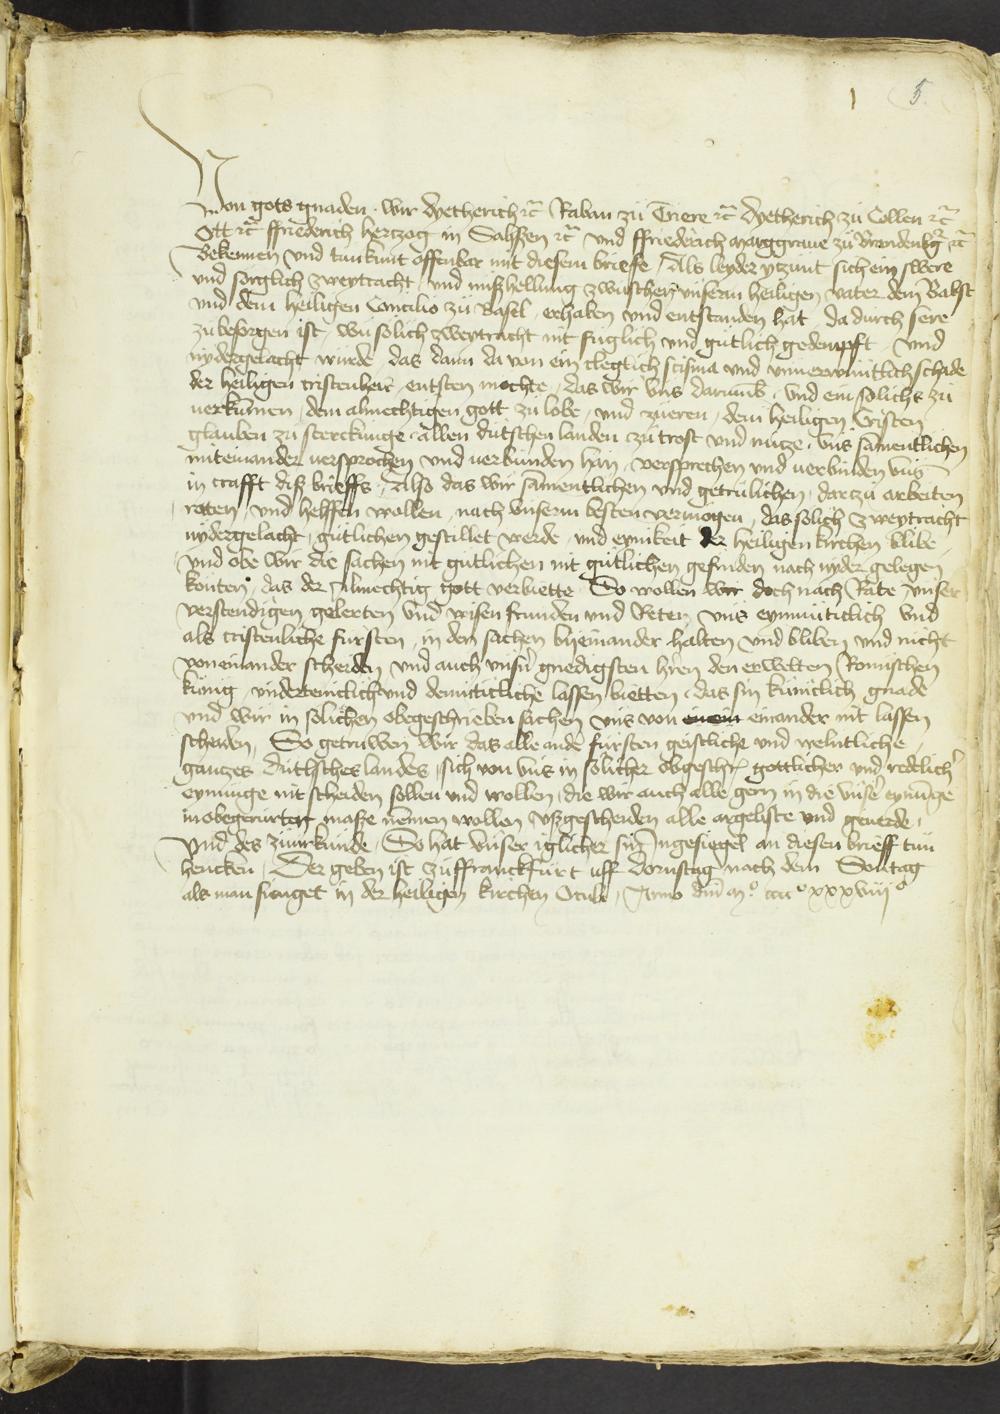 1 5
Von gots gnaden wir dyetherich ꝛc̃ Raban zü Triere ꝛc̃ dyetherich zü Collen ꝛc̃
Ott ꝛc̃ ffriederich hertzog in Sahßen ꝛc̃ und ffriederich marggraue zü Brandenbg̃ ꝛc̃
Bekennen und tun kunt offenbar mit diesem briefe / Als leyder yczünt sich ein swere
und sorglich zweytracht und mißhellung zwüschen unserm heiligen vater dem Babst
und dem heiligen Concilio zü Basel erhaben und entstanden hat / da durch sere
zu besorgen ist / wu solich zweytracht nit füglich und gütlich gedempft und
nydergelacht würde das dann da von ein cleglich scisma und schade
der heiligen cristenheit entsten mochte / das wir uns darumb und ein solichs zü
uerkumen / dem almechtigen gott zu lobe / und zueren / dem heiligen Cristen
glauben zu sterckunge allen dütschen landen zü trost und nütze / uns samentlichen
miteinander versprochen und uerbünden han / versprechen und uerbinden uns
in crafft diß brieffs / Also das wir samentlichen und getrülichen darzü arbeiten
roten / und helffen wollen / nach unserm besten vermögen / das solich zweytracht
nydergelacht / gütlichen gestillet werde / und eynikeit der heiligen kirchen blibe
und obe wir die sachen nit gütlichen nit gütlichen gefinden nach nyder gelegen
konten / das der Almechtig gott verbiette / So wollen wir doch nach Rate unser
verstendigen gelerten und wisen frunden und Reten / uns eynmütticlich und
als cristenliche fürsten / in den sachen byeinander halten und bliben und nicht
voneinander scheiden und auch unsñ gnedigsten hren den erwelten Romischen
künig / und demüticliche lassen bietten / das sin küniclich gnade
und wir in solichen obegeschrieben sachen uns von einein einander nit lassen
scheiden / So getruwen wir das alle ande fürsten geistliche und weltliche
ganczes düthsches landes / sich von uns in solicher obgeschr̃ gottlicher und redelich̃
eynunge nit scheiden sollen und wollen / die wir auch alle gern in die unse eynunge
in obegerürter maße nemen wollen / ußgescheiden alle argeliste und geuerde /
Und des züurkünde / So hat unser iglicher sin Ingesiegel an diesen brieff tun
hencken / Der geben ist zü ffranckfürt uff dornstag nach dem Sontag
als man singet in der heiligen kirchen Oculi / Anno dm̃ mº ccccº xxxviijº